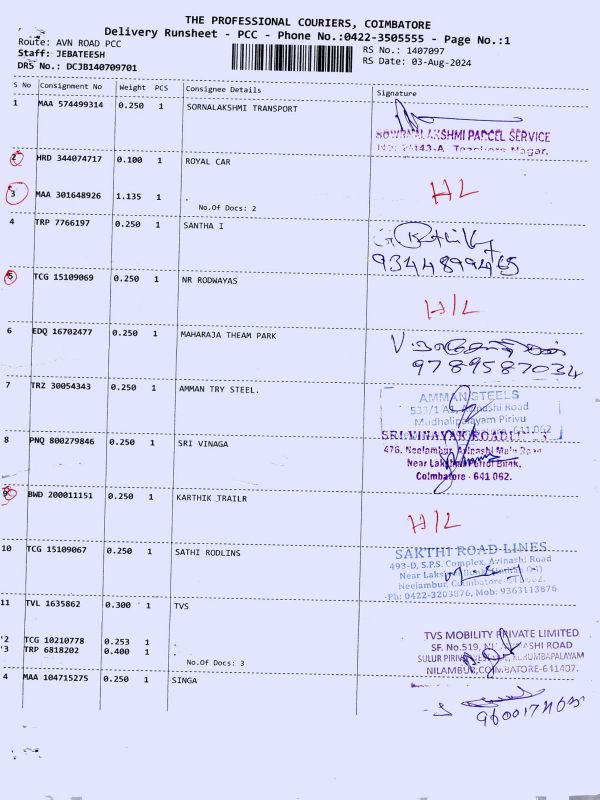 THE PROFESSIONAL COURIERS, COIMBATORE
Delivery Runsheet - PCC - Phone No.:0422-3505555 - Page No.:1
Route: AVN ROAD PCC
RS No.: 1407097
Staff: JEBATEESH
RS Date: 03-Aug-2024
DRS No.: DCJB140709701
S No Consignment No Weight PCS Consignee Details Signature
1 MAA 574499314 0.250 1 SORNALAKSHMI TRANSPORT
SOWRNALAKSHMI PARCEL SERVICE
2 HRD 344074717 0.100 1 ROYAL CAR
3 MAA 301648926 1.135 1 . H/L
No.Of Docs: 2
4 TRP 7766197 0.250 1 SANTHA I
9344899465
5 TCG 15109069 0.250 1 NR RODWAYAS
H/L
6 EDQ 16702477 0.250 1 MAHARAJA THEAM PARK
9789587034
7 TRZ 30054343 0.250 1 AMMAN TRY STEEL.
AMMAN STEELS
537/1 Avinashi Road
Mudhalipalayam Pirivu
641 062
8 PNQ 800279846 0.250 1 SRI VINAGA
SRI VINAYAK ROADLINES
476, Neelambur, Avinashi Main Road
Near Lakshmi Petrol Bunk,
Coimbatore - 641 062.
9 BWD 200011151 0.250 1 KARTHIK TRAILR
H/L
10 TCG 15109067 0.250 1 SATHI RODLINS
SAKTHI ROAD LINES
493-D, S.P.S. Complex, Avinashi Road
Near Lakshmi Bunk
Neelambur, Coimbatore-641 062.
Ph: 0422-3203876, Mob: 9363113876
11 TVL 1635862 0.300 1 TVS
'2 TCG 10210778 0.253 1
'3 TRP 6818202 0.400 1
No.Of Docs: 3
TVS MOBILITY PRIVATE LIMITED
SF. No.519, AVINASHI ROAD
SULUR PIRIVU KURUMBAPALAYAM
NILAMBUR, COIMBATORE-641407.
4 MAA 104715275 0.250 1 SINGA